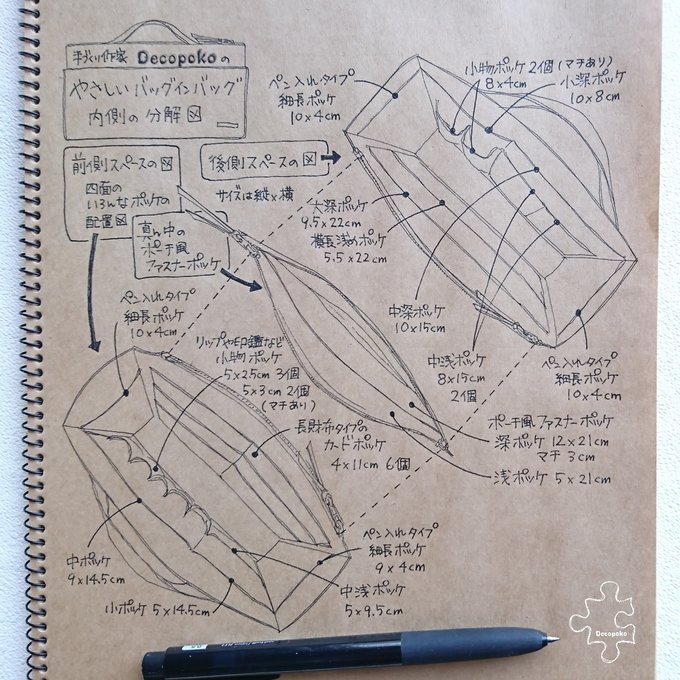 手づくり作家 Decopokoの
やさしいバッグインバッグ
内側の分解図
前側スペースの図
四面の
いろんなポケの
配置図
後側スペースの図
サイズは縦×横
真ん中の
ポーチ風
ファスナーポッケ
ペン入れタイプ
細長ポッケ
10×4cm
小物ポッケ 2個 (マチあり)
8×4cm
小深ポッケ
10×8cm
大深ポッケ
9.5×22cm
横長浅めポッケ
5.5×22cm
中深ポッケ
10×15cm
中浅ポッケ
8×15cm
2個
ペン入れタイプ
細長ポッケ
10×4cm
ポーチ風ファスナーポッケ
深ポッケ 12×21cm
マチ 3cm
浅ポッケ 5×21cm
ペン入れタイプ
細長ポッケ
10×4cm
リップや印鑑など
小物ポッケ
5×2.5cm 3個
5×3cm 2個
(マチあり)
長財布タイプの
カードポッケ
4×11cm 6個
ペン入れタイプ
細長ポッケ
9×4cm
中浅ポッケ
5×9.5cm
中ポッケ
9×14.5cm
小ポッケ 5×14.5cm
Decopoko